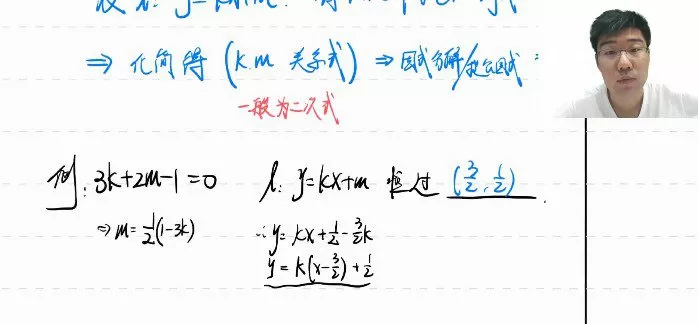 ⇒ 化简得 (k.m 关系式) ⇒ 因式分解/提公因式:
一般为二次式
例: 3k+2m-1=0 l: y=kx+m 恒过 (3/2, 1/2).
⇒ m=1/2(1-3k) ∴ y=kx+1/2-3/2k
y=k(x-3/2)+1/2